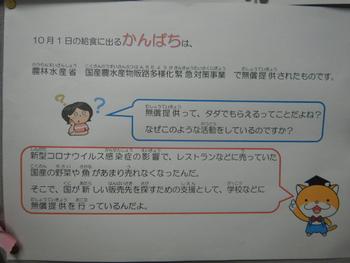 10月1日の給食に出るかんぱちは、
農林水産省 国産農水産物販路多様化緊急対策事業 で無償提供されたものです。
無償提供って、タダでもらえるってことだよね?
なぜこのような活動をしているのですか?
新型コロナウイルス感染症の影響で、レストランなどに売っていた
国産の野菜や魚があまり売れなくなったんだ。
そこで、国が新しい販売先を探すための支援として、学校などに
無償提供を行っているんだよ。